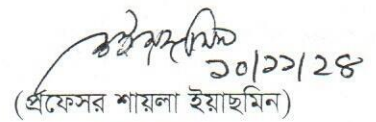 ২০/১১/২৪
(প্রফেসর শায়লা ইয়াছমিন)